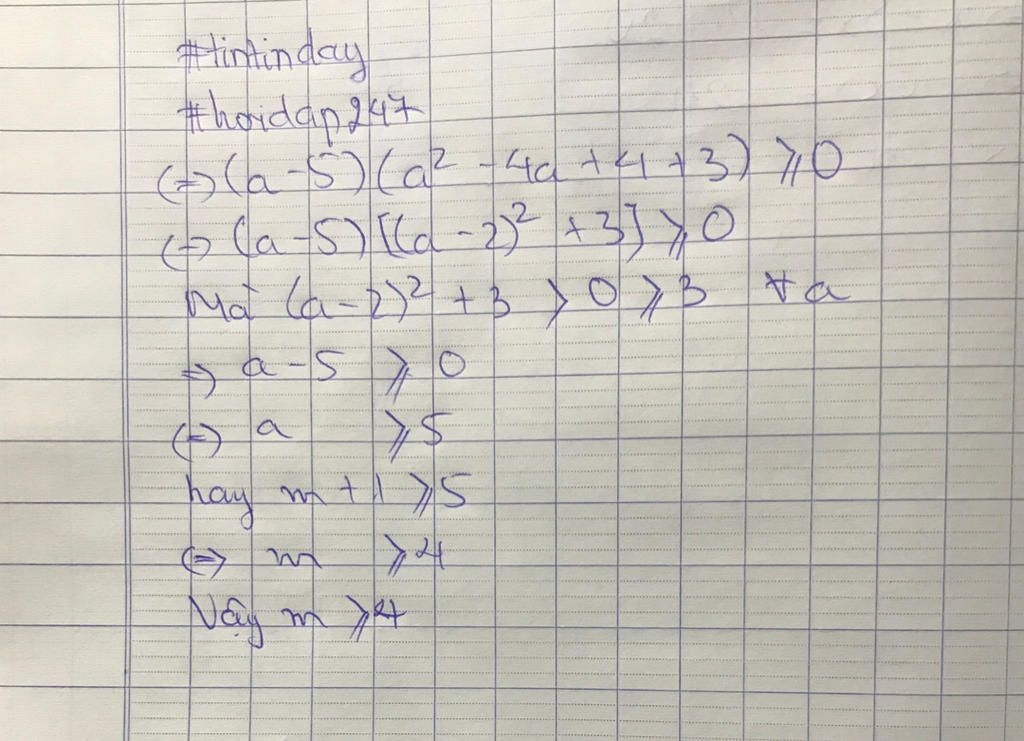 #tintinday
#hoidap247
(=) (a - 5) (a² - 4a + 4 + 3) ⩾ 0
(=) (a - 5) [(a - 2)² + 3] ⩾ 0
Mà (a - 2)² + 3 > 0 ⩾ 3 ∀a
=) a - 5 ⩾ 0
(=) a ⩾ 5
hay m + 1 ⩾ 5
(=) m ⩾ 4
Vậy m ⩾ 4